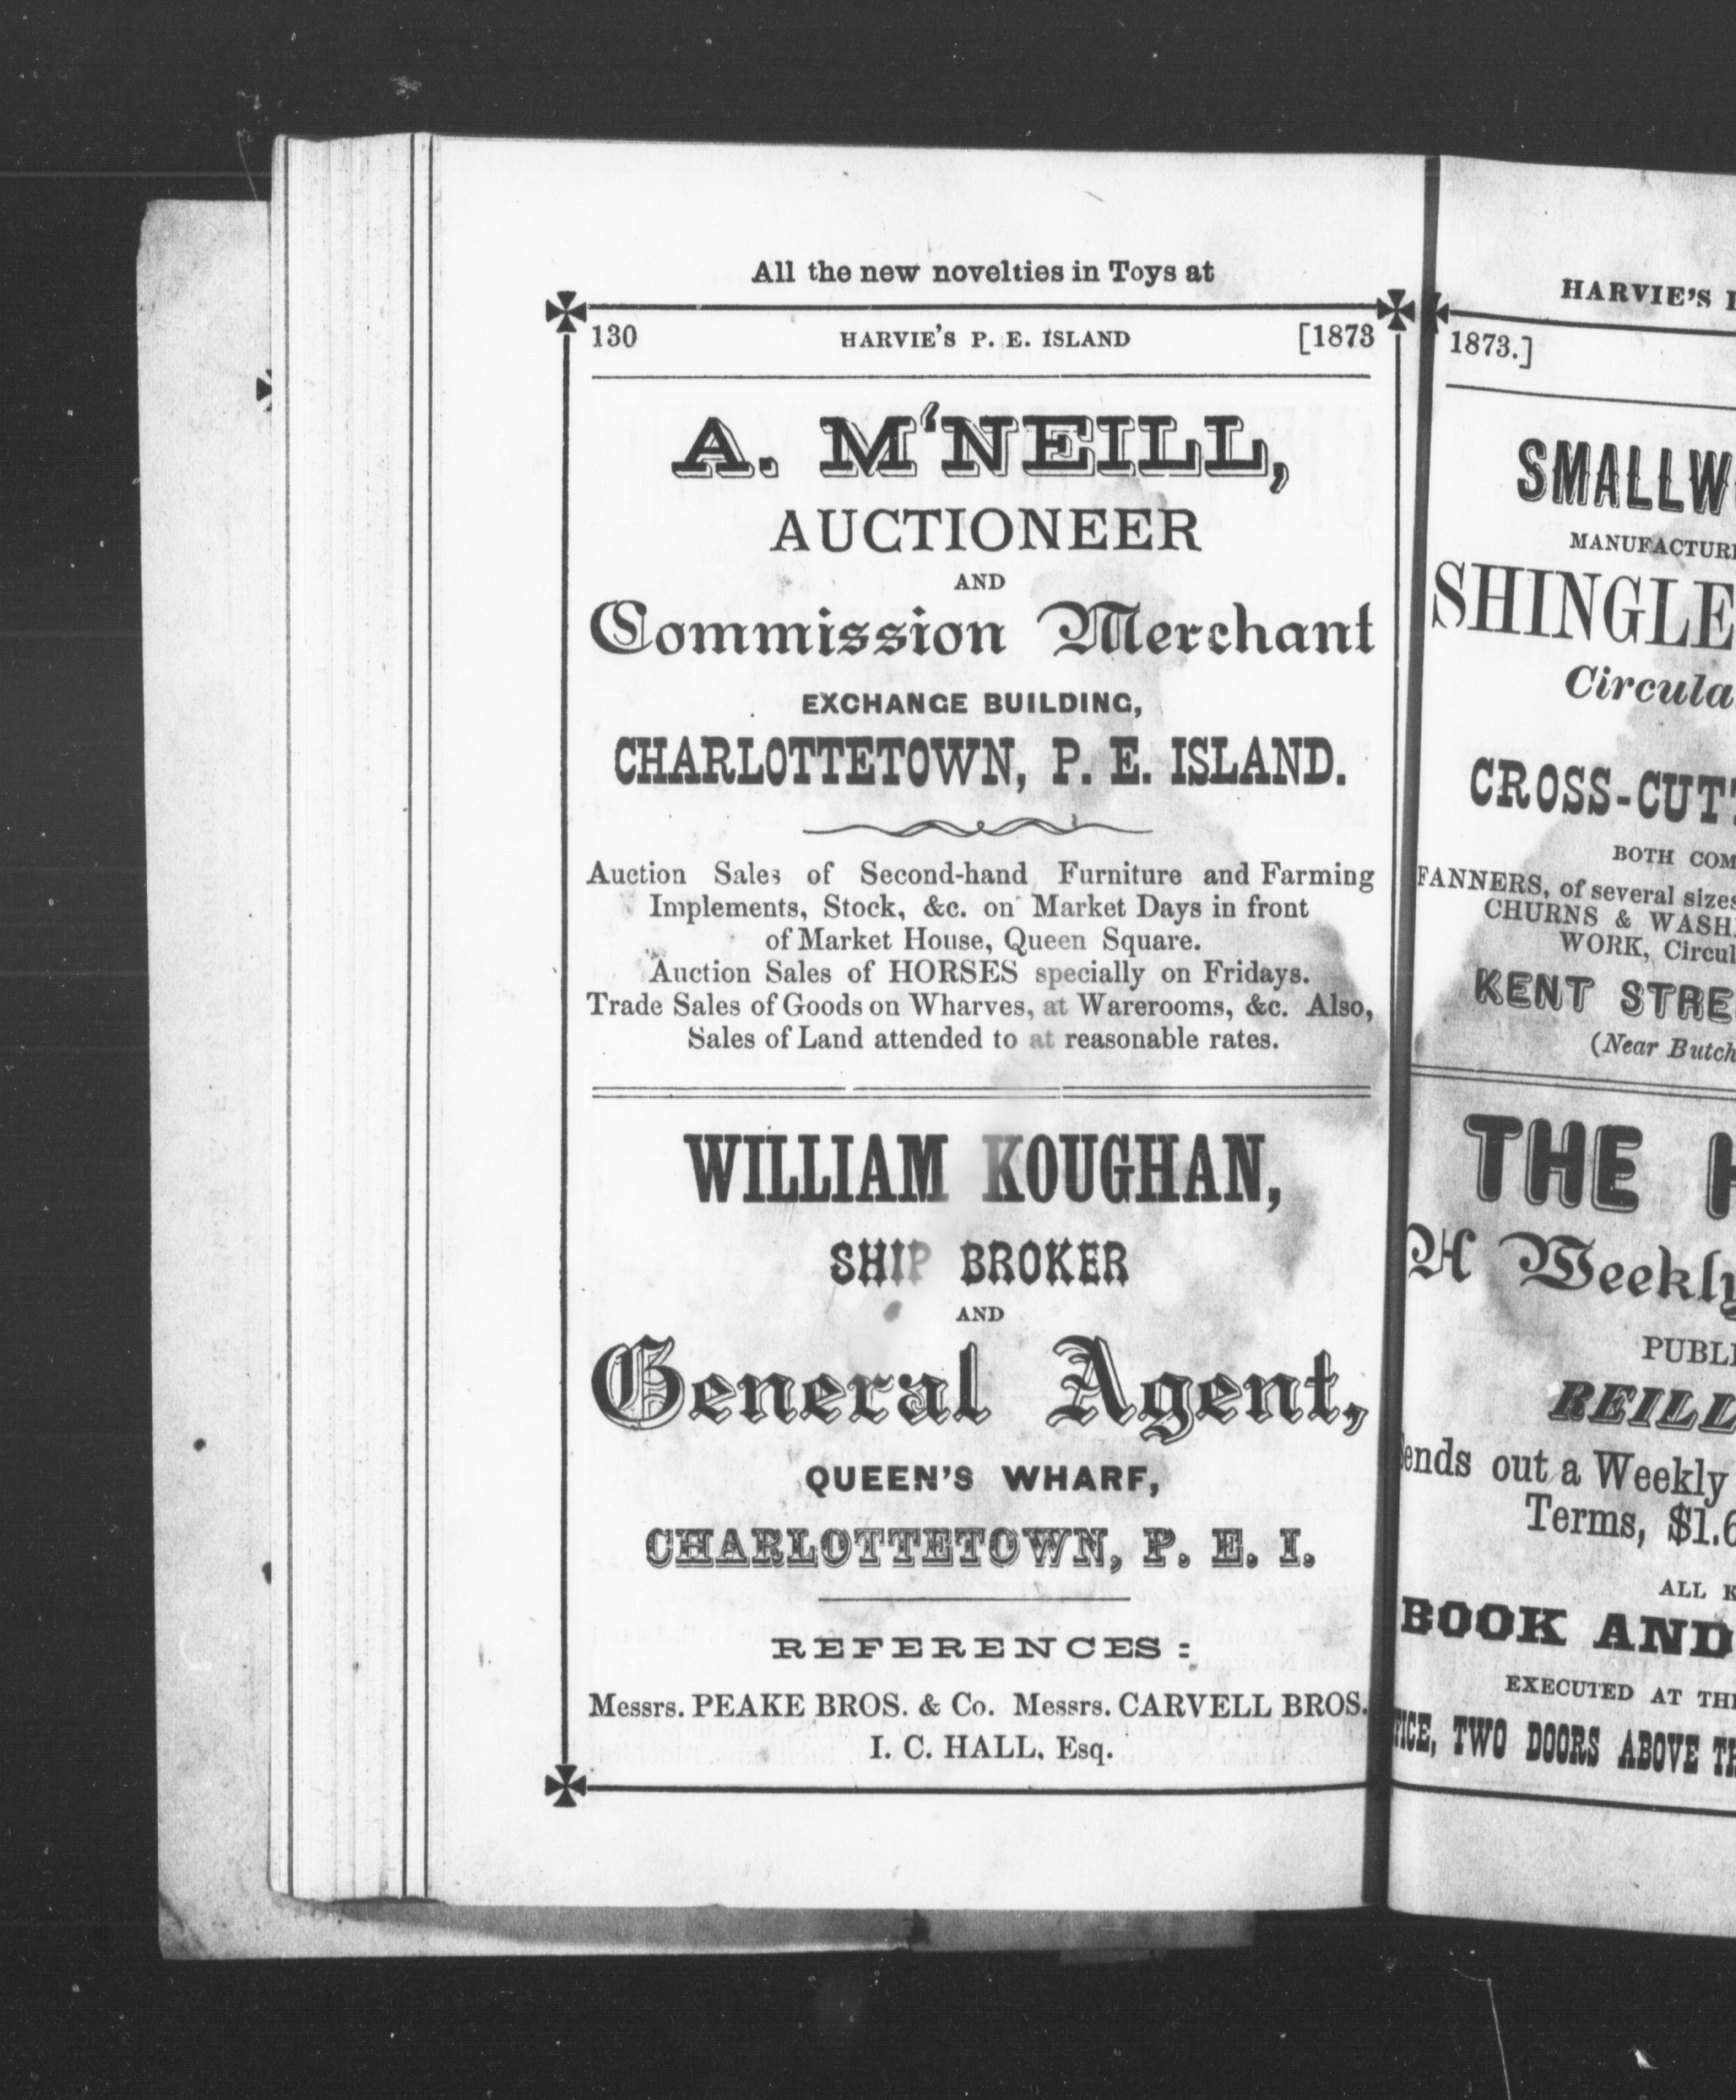 All the new novelties in Toys at
130 HARVIE'S P. E. ISLAND [1873
A. M'NEILL,
AUCTIONEER
AND
Commission Merchant
EXCHANGE BUILDING,
CHARLOTTETOWN, P. E. ISLAND.
Auction Sales of Second-hand Furniture and Farming
Implements, Stock, &c. on Market Days in front
of Market House, Queen Square.
Auction Sales of HORSES specially on Fridays.
Trade Sales of Goods on Wharves, at Warerooms, &c. Also,
Sales of Land attended to at reasonable rates.
WILLIAM KOUGHAN,
SHIP BROKER
AND
General Agent,
QUEEN'S WHARF,
CHARLOTTETOWN, P. E. I.
REFERENCES:
Messrs. PEAKE BROS. & Co. Messrs. CARVELL BROS.
I. C. HALL, Esq.
HARVIE'S
1873.]
SMALLW
MANUFACTUR
SHINGLE
Circula
CROSS-CUT
BOTH COM
FANNERS, of several sizes
CHURNS & WASH
WORK, Circul
KENT STRE
(Near Butch
THE H
A Weekly
PUBLI
REILL
ends out a Weekly
Terms, $1.6
ALL K
BOOK AND
EXECUTED AT THE
FICE, TWO DOORS ABOVE TH